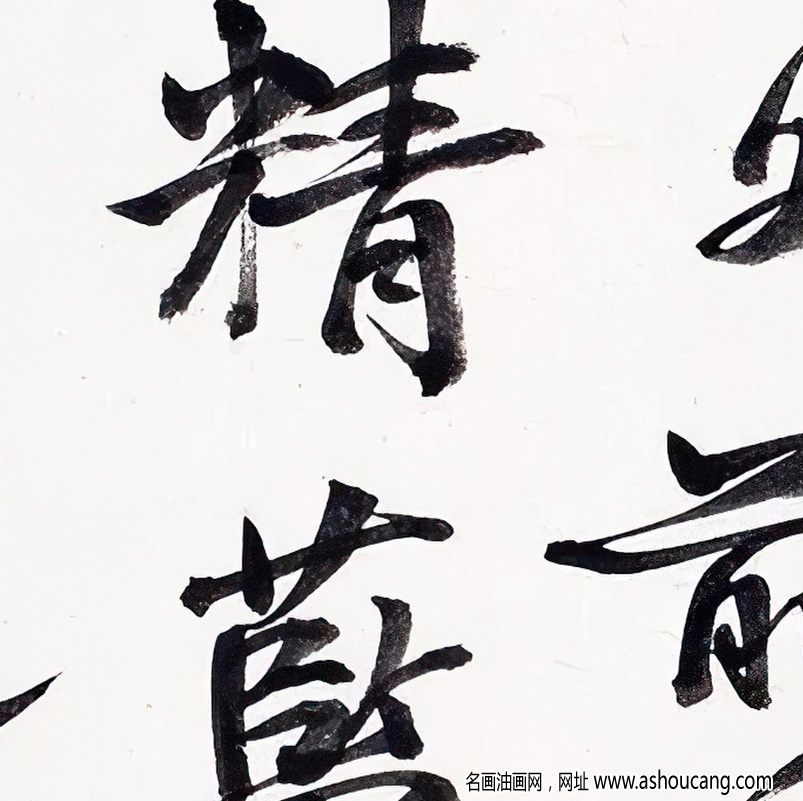 前
精
藍
名画油画网，网址 www.ashoucang.com